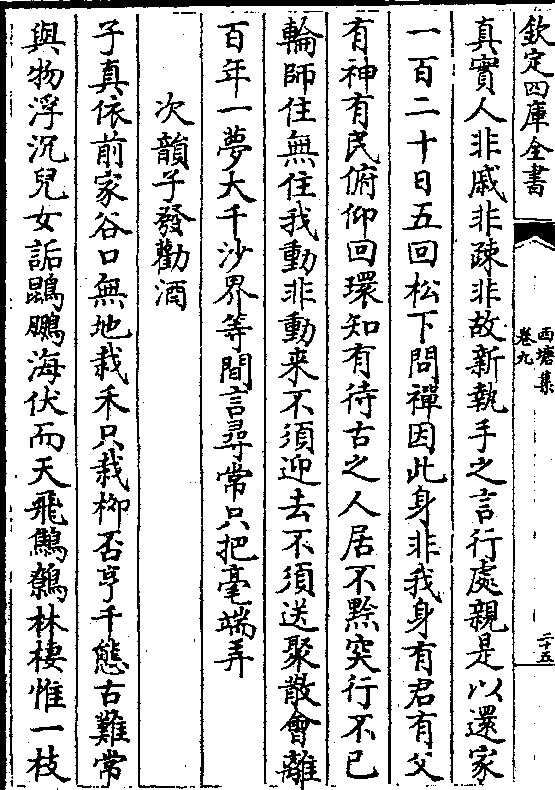 欽定四庫全書
西塘集
卷九
二十五
真實人非戚非疎非故新執手之言行處親是以還家
一百二十日五回松下問禪因此身非我身有君有父
有神有民俯仰回環知有待古之人居不黔突行不已
輪師住無住我動非動来不須迎去不須送聚散會離
百年一夢大千沙界等閒言尋常只把毫端弄
次韻子發勸酒
子真依前家谷口無地栽禾只栽栁否亨千態古難常
與物浮沉兒女詬鵾鵬海伏而天飛鷦鷯林棲惟一枝